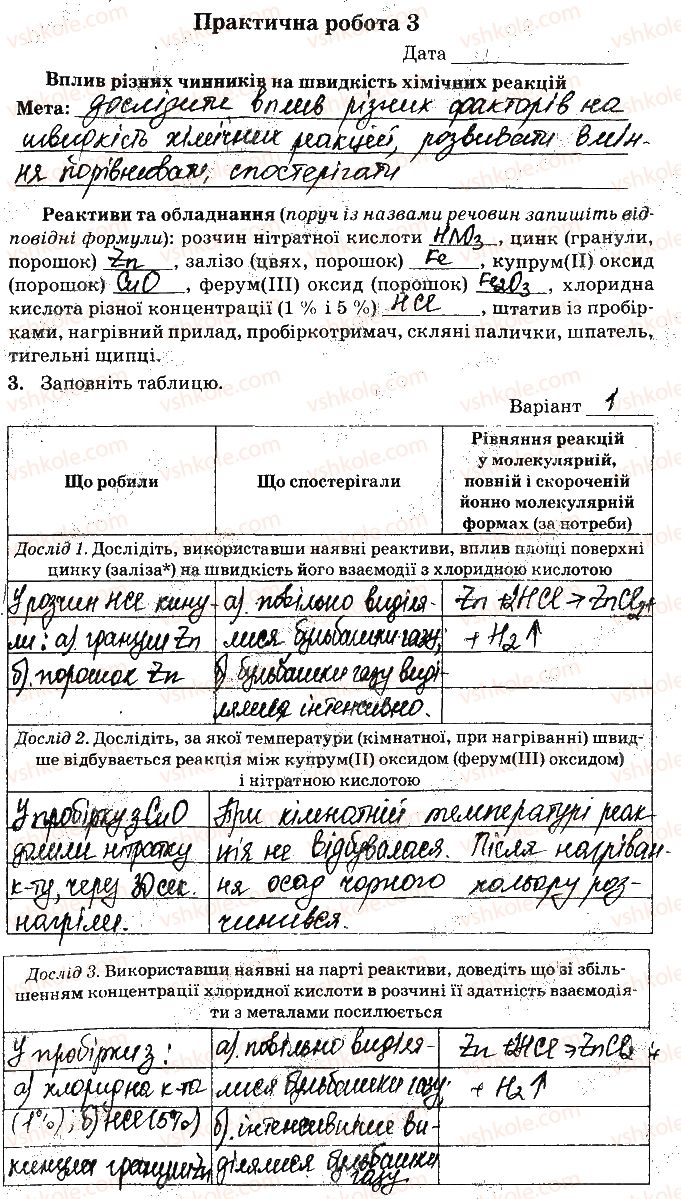 Практична робота 3
Дата
Вплив різних чинників на швидкість хімічних реакцій
Мета: дослідити вплив різних факторів на
швидкість хімічних реакцій, розвивати вмін-
ня порівнювати, спостерігати
Реактиви та обладнання (поруч із назвами речовин запишіть від-
повідні формули): розчин нітратної кислоти HNO3, цинк (гранули,
порошок) Zn, залізо (цвях, порошок) Fe, купрум(II) оксид
(порошок) CuO, ферум(III) оксид (порошок) Fe2O3, хлоридна
кислота різної концентрації (1 % і 5 %) HCl, штатив із пробір-
ками, нагрівний прилад, пробіркотримач, скляні палички, шпатель,
тигельні щипці.
3. Заповніть таблицю.
Варіант 1
Що робили
Що спостерігали
Рівняння реакцій
у молекулярній,
повній і скороченій
йонно молекулярній
формах (за потреби)
Дослід 1. Дослідіть, використавши наявні реактиви, вплив площі поверхні
цинку (заліза*) на швидкість його взаємодії з хлоридною кислотою
У розчин HCl кину-
ли: а) гранули Zn
б) порошок Zn
а). повільно виділя-
лися бульбашки газу;
б). бульбашки газу виді-
лялися інтенсивно.
Zn + 2HCl → ZnCl2 +
+ H2 ↑
Дослід 2. Дослідіть, за якої температури (кімнатної, при нагріванні) швид-
ше відбувається реакція між купрум(II) оксидом (ферум(III) оксидом)
і нітратною кислотою
У пробірку з CuO
долили нітратну
к-ту, через 30 сек.
нагріли.
При кімнатній температурі реак-
ція не відбувалася. Після нагріван-
ня осад чорного кольору роз-
чинився.
Дослід 3. Використавши наявні на парті реактиви, доведіть що зі збіль-
шенням концентрації хлоридної кислоти в розчині її здатність взаємодія-
ти з металами посилюється
У пробірки з:
а) хлоридна к-та
(1%), б) HCl (5%)
кинули гранули Zn
а). повільно виділя-
лися бульбашки газу;
б). інтенсивніше ви-
ділялися бульбашки
газу
Zn + 2HCl → ZnCl2 +
+ H2 ↑